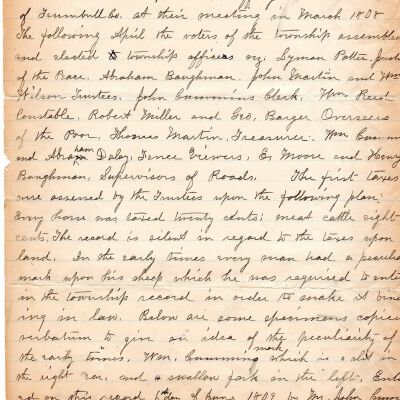 of Trumbull Co. at their meeting in March 1808
The following April the voters of the township assembled
and elected township officers viz; Lyman Potter Just
of the Peace. Abraham Baughman, John Martin and Wm
Wilson Trustees. John Cummins Clerk. Wm. Reed
Constable, Robert Miller and Geo. Barger Overseers
of the Poor. Thomas Martin, Treasurer. Wm Cumm
and Abraham Daly, Fence Viewers, E. Moore and Henry
Baughman, Supervisors of Roads. The first taxes
were assessed by the Trustees upon the following plan:
Every horse was taxed twenty cents; meat cattle eight
cents. The record is silent in regard to the taxes upon
land. In the early times every man had a peculia
mark upon his sheep which he was required to ente
in the township record in order to make it bind
ing in law. Below are some specimens copied
verbatum to give an idea of the peculiarity of
the early times. Wm. Cummins mark which is a slit in
the right ear, and a swallow fork in the left. Ent
ed on this record day of June 1809 by Mr John Cumm